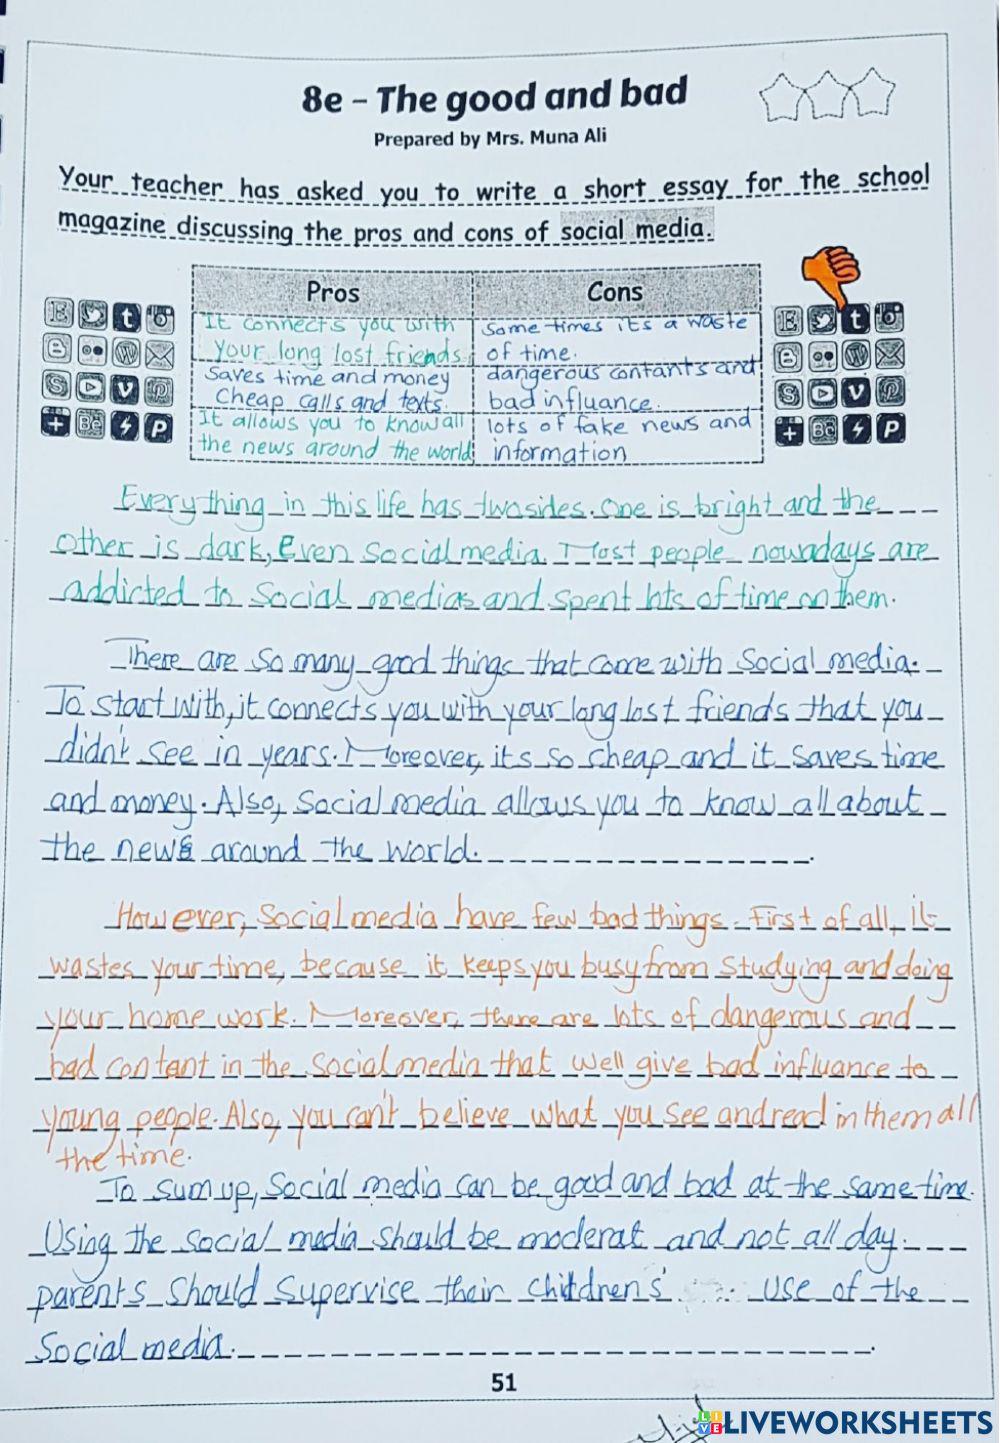 8e - The good and bad
Prepared by Mrs. Muna Ali
Your teacher has asked you to write a short essay for the school
magazine discussing the pros and cons of social media.
Pros
Cons
It connects you with
your long lost friends.
Some times its a waste
of time.
Saves time and money
Cheap calls and texts.
dangerous contants and
bad influance.
It allows you to know all
the news around the world
lots of fake news and
information
Everything in this life has two sides. One is bright and the
other is dark, Even social media. Most people nowadays are
addicted to social medias and spent lots of time on them.
There are so many good things that come with social media.
To start with, it connects you with your long lost friends that you
didn't see in years. Moreover, its so cheap and it saves time
and money. Also, social media allows you to know all about
the news around the world.
However, social media have few bad things. First of all, it
wastes your time, because it keeps you busy from studying and doing
your home work. Moreover, there are lots of dangerous and
bad contant in the social media that well give bad influance to
young people. Also, you can't believe what you see and read in them all
the time.
To sum up, social media can be good and bad at the same time.
Using the social media should be moderat and not all day.
parents should supervise their childrens' use of the
social media.
51
LIVEWORKSHEETS